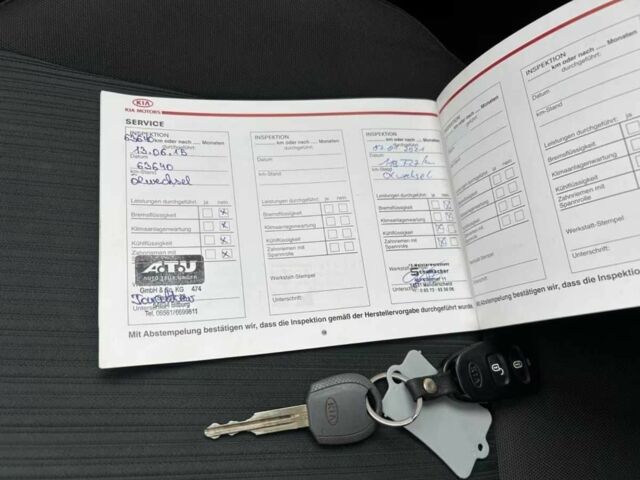 KIA
KIA MOTORS
SERVICE
INSPEKTION
63640 km oder nach ..... Monaten
durchgeführt:
13.06.18
Datum
63640
km-Stand
Ölwechsel
Leistungen durchgeführt: ja nein
Bremsflüssigkeit
Klimaanlagenwartung
Kühlflüssigkeit
Zahnriemen mit
A.T.U
AUTO TEILE UNGER
GmbH & Co. KG 474
54634 Bitburg
Tel. 06561/6699811
INSPEKTION
km oder nach ..... Monaten
durchgeführt:
Datum
km-Stand
Leistungen durchgeführt: ja nein
Bremsflüssigkeit
Klimaanlagenwartung
Kühlflüssigkeit
Zahnriemen mit
Spannrolle
Werkstatt-Stempel
Unterschrift:
INSPEKTION
km oder nach ..... Monaten
durchgeführt:
Datum
km-Stand
Ölwechsel
Leistungen durchgeführt: ja nein
Bremsflüssigkeit
Klimaanlagenwartung
Kühlflüssigkeit
Zahnriemen mit
Spannrolle
Unterschrift:
Mit Abstempelung bestätigen wir, dass die Inspektion gemäß der Herstellervorgabe durchgeführt wurde.
INSPEKTION
km oder nach ..... Monaten
durchgeführt:
Datum
km-Stand
Leistungen durchgeführt:
Bremsflüssigkeit
Klimaanlagenwartung
Kühlflüssigkeit
Zahnriemen mit
Spannrolle
Werkstatt-Stempel
Unterschrift:
Mit Abstempelung bestätigen wir, dass die Inspektion
INSPEKTION
Datum
km-Stand
Leistungen durchgeführt
Bremsflüssigkeit
Klimaanlagenwartung
Kühlflüssigkeit
Zahnriemen mit
Spannrolle
Werkstatt-Stempel
Unterschrift:
KIA